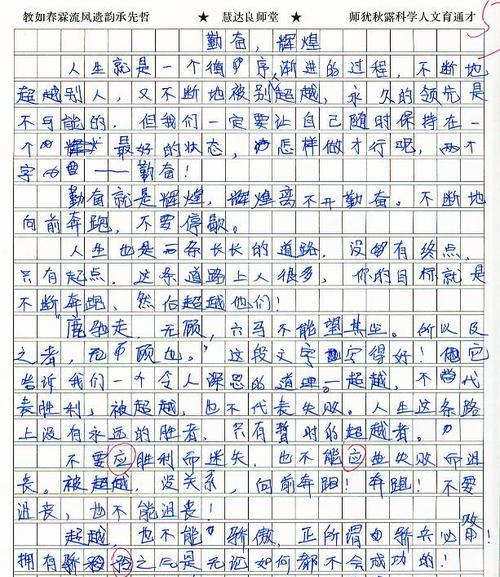 教如春霖流风遗韵承先哲 ★ 慧达良师堂 ★ 师犹秋露科学人文育通才
勤奋，辉煌
人生就是一个循序渐进的过程，不断地
超越别人，又不断地被别超越，永久的领先是
不可能的，但我们一定要让自己随时保持在一
个最好的状态，怎样做才行呢，两个
字——勤奋！
勤奋就是辉煌，辉煌离不开勤奋。不断地
向前奔跑，不要停歇。
人生也是一条长长的道路，没有终点，
只有起点，这条道路上人很多，你的目标就是
不断奔跑，然后超越他们！
"鹿驰走，无顾，六马不能望其尘。所以及
之者，无顾也。"这段文字写得好！它
告诉我们一个令人深思的道理。超越，不代
表胜利，被超越，也不代表失败。人生这条路
上没有永远的胜者，只有暂时的超越者。"
不要应胜利而迷失，也不能应失败而沮
丧。被超越，没关系，向前奔跑！奔跑！不要
沮丧，也不能沮丧！
超越，也不能骄傲，正所谓骄兵必败！
拥有骄之后是无论如何都不会成功的！